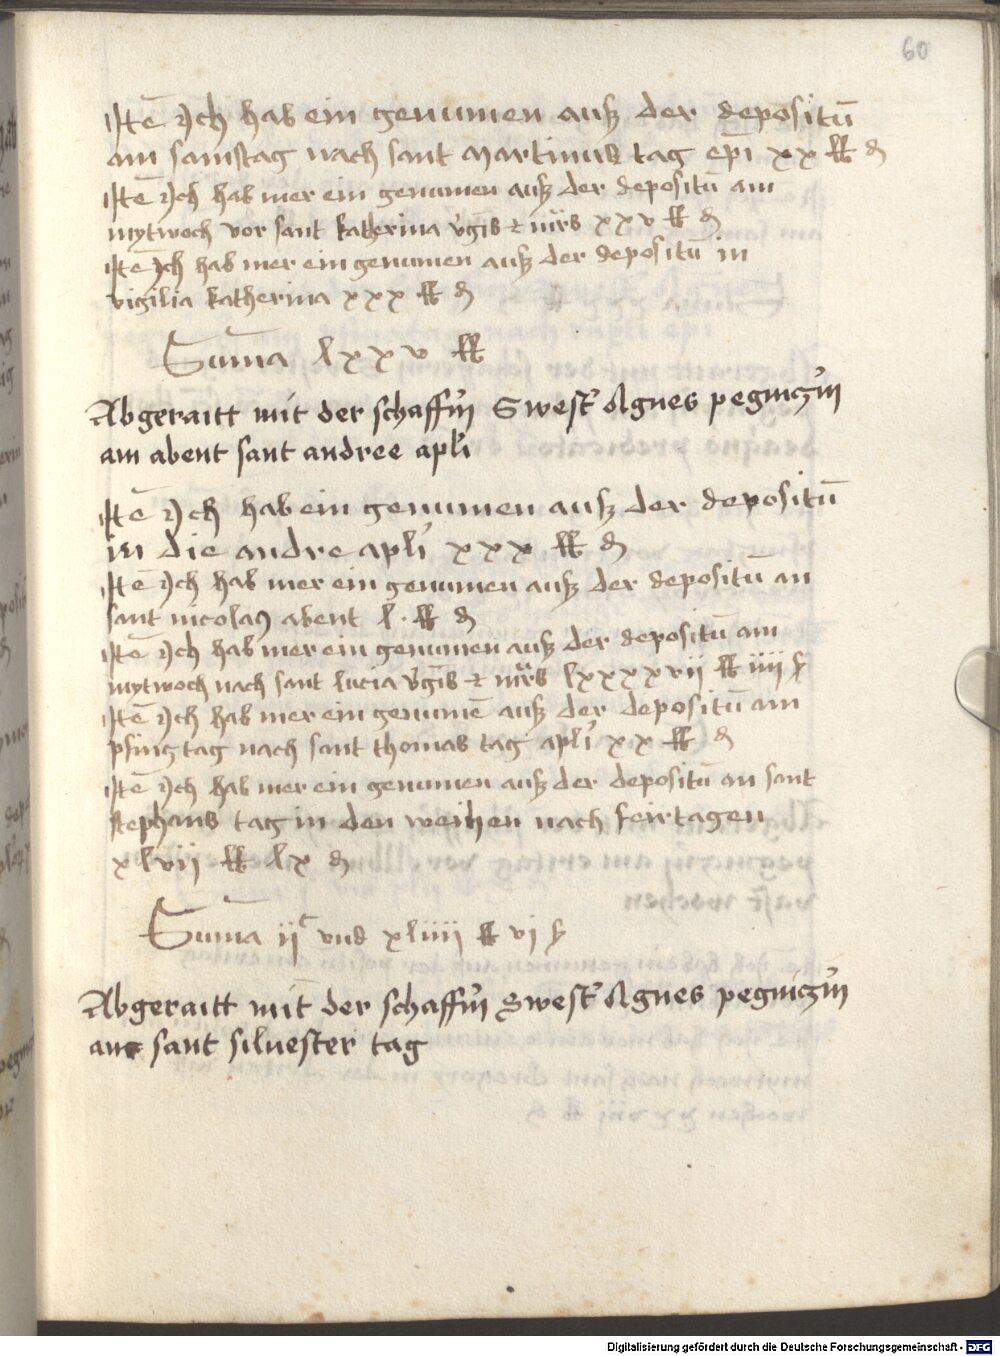 60
Itē Ich hab ein genumen ausz der depositū
am samstag nach sant Martinus tag ep̄i xx ℔ ₰
Itē Ich hab mer ein genumen ausz der depositū am
mytwoch vor sant katherina v̓gīs et mr̄is xxv ℔ ₰
Itē Ich hab mer ein genumen ausz der depositū in
vigilia katherina xxx ℔ ₰
Suma lxxv ℔
Abgeraitt mit der schaffn̓ Swest̓ Agnes pegnicz̓in
am abent sant andree apl̓i
Itē Ich hab ein genumen ausz der depositū
in die andre apl̓i xxx ℔ ₰
Itē Ich hab mer ein genumen ausz der depositū an
sant nicolaꝰ abent l · ℔ ₰
Itē Ich hab mer ein genumen ausz der depositū am
mytwoch nach sant lucia v̓gīs et mr̄is lxxxxvii ℔ iiii ß
Itē Ich hab mer ein genumē ausz der depositū am
pfingtag nach sant thomas tag apl̓i xx ℔ ₰
Itē Ich hab mer ein genumen ausz der depositū an sant
stephans tag in den weihen nach feirtagen
xlvii ℔ lx ₰
Suma iiᶜ vnd xliiii ℔ vi ß
Abgeraitt mit der schaffn̓ Swest̓ Agnes pegnicz̓in
an sant siluester tag
Digitalisierung gefördert durch die Deutsche Forschungsgemeinschaft - DFG